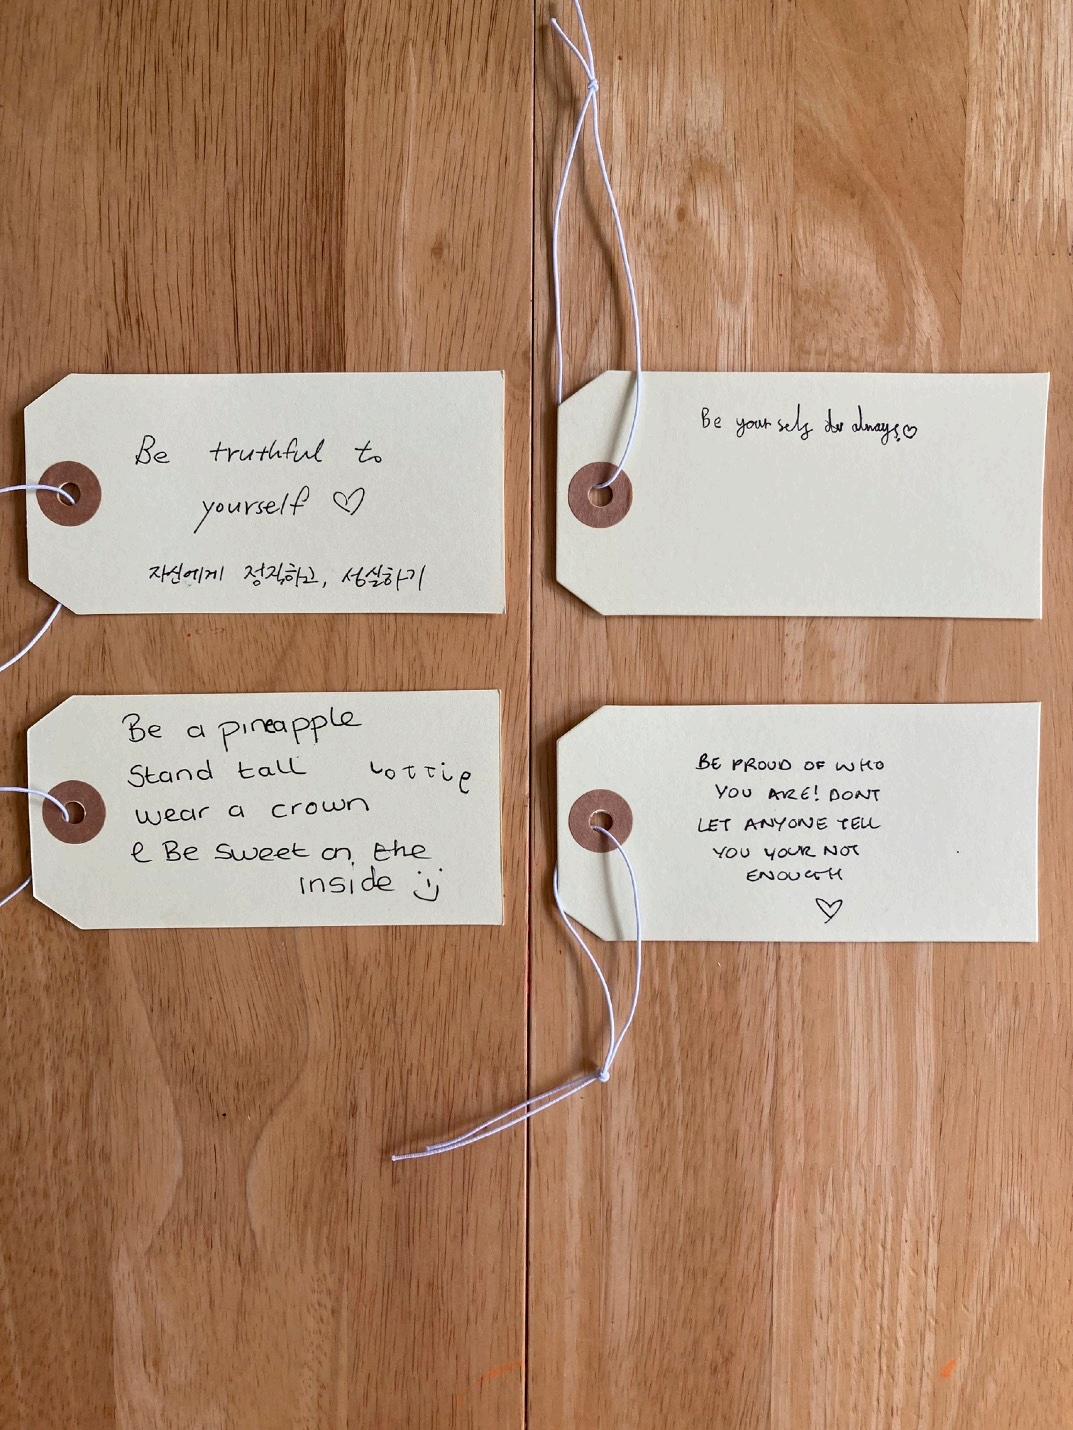 Be truthful to
yourself ♡
자신에게 정직하고, 성실하기
Be your self always! ♡
Be a pineapple
Stand tall
Lottie
wear a crown
& Be sweet on the
inside :)
BE PROUD OF WHO
YOU ARE! DONT
LET ANYONE TELL
YOU YOUR NOT
ENOUGH
♡